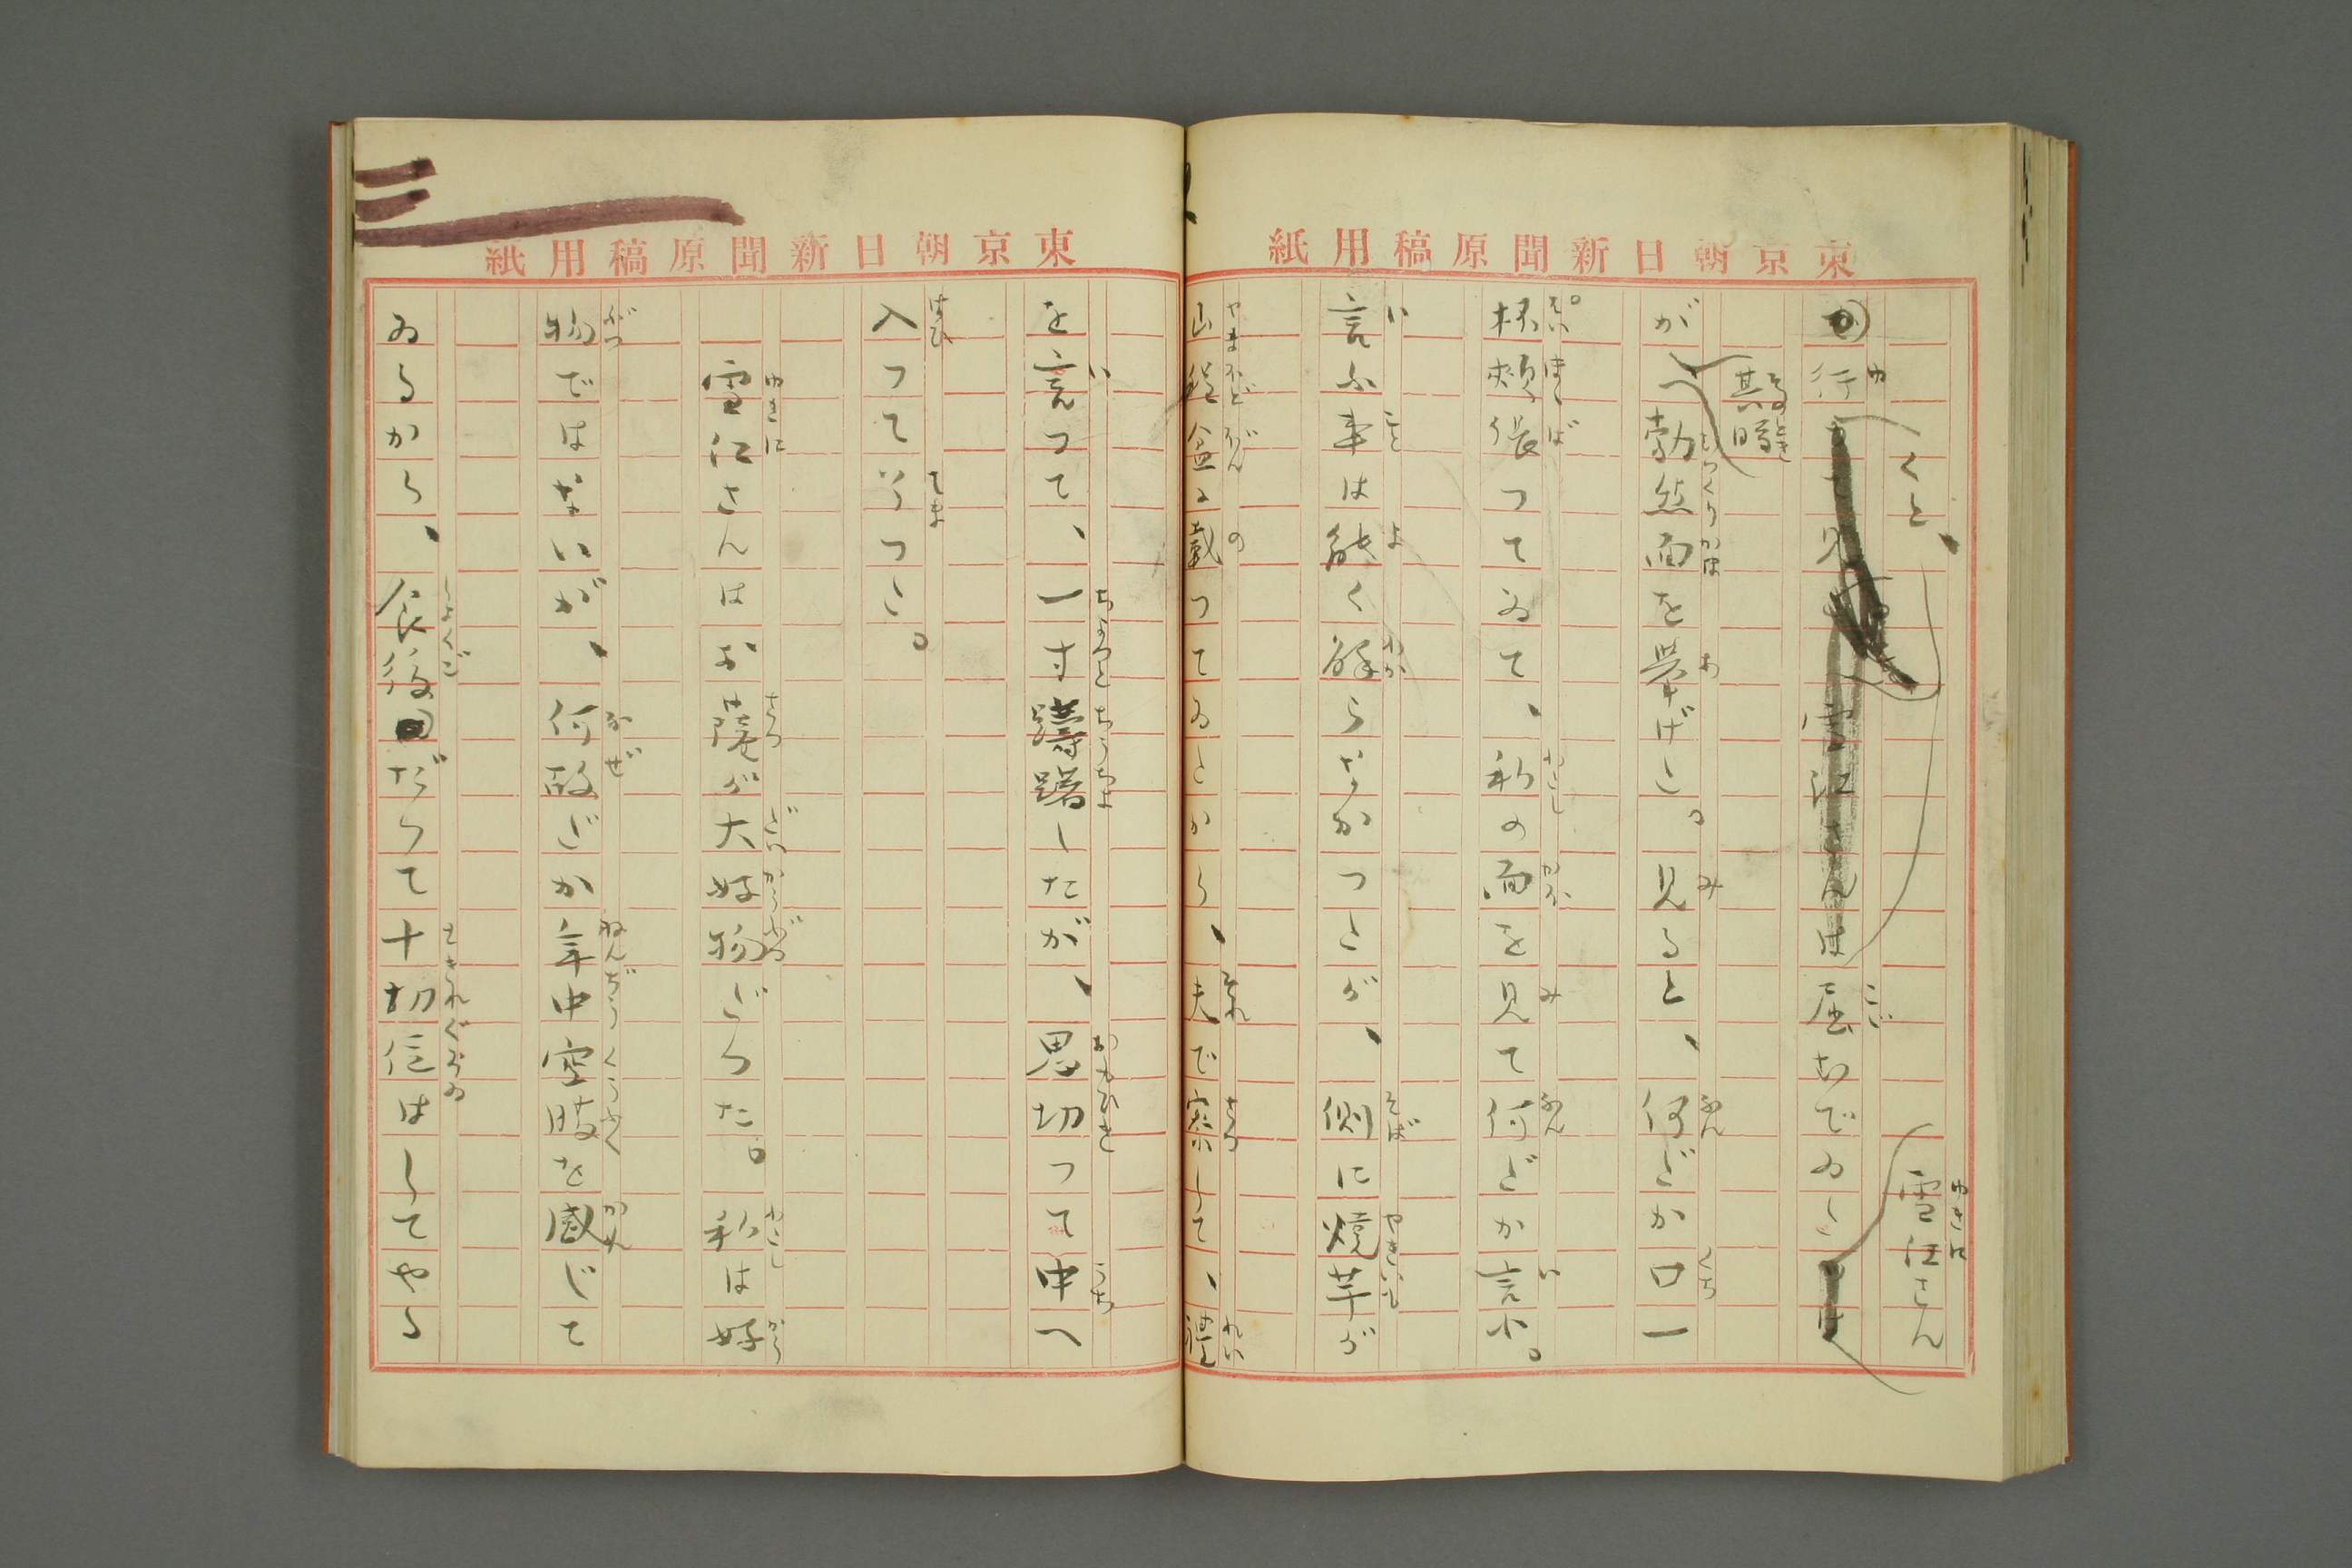 東京朝日新聞原稿用紙
くと、
雪江さん
行
雪江さんは屈んでゐた
其時
が勃然面を挙げた。見ると、何だか口一
杯頬張つてゐて、私の面を見て何だか言ふ。
言ふ事は能く解らなかつたが、側に焼芋が
山程盆に載つてゐたから、夫で察して、礼
東京朝日新聞原稿用紙
三
を言つて、一寸躊躇したが、思切つて中へ
入つて了つた。
雪江さんはお薩が大好物だつた。私は好
物ではないが、何故だか年中空腹を感じて
ゐるから、食後だつて十切位はしてやる